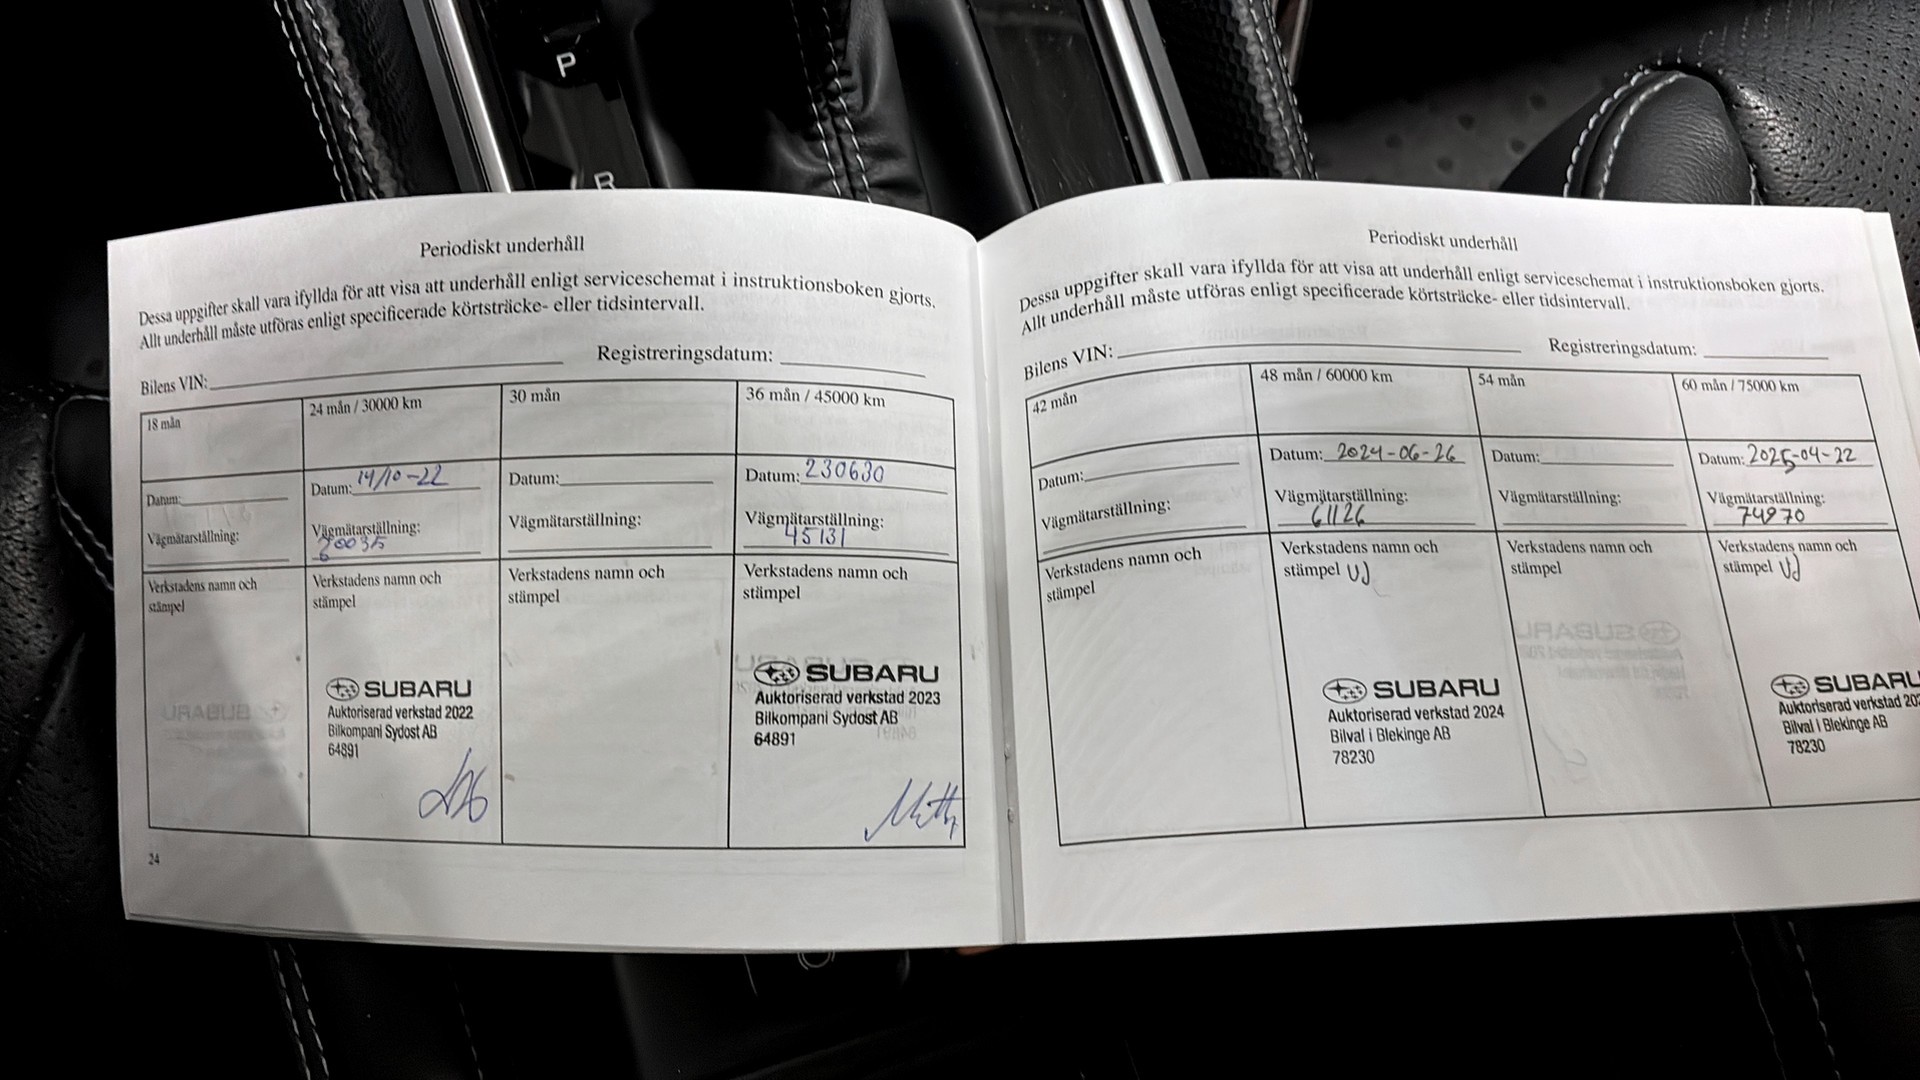 P
R
Periodiskt underhåll
Dessa uppgifter skall vara ifyllda för att visa att underhåll enligt serviceschemat i instruktionsboken gjorts.
Allt underhåll måste utföras enligt specificerade körtsträcke- eller tidsintervall.
Bilens VIN: Registreringsdatum:
18 mån
Datum:
Vägmätarställning:
Verkstadens namn och
stämpel
24 mån / 30000 km
Datum: 14/10-22
Vägmätarställning:
Verkstadens namn och
stämpel
SUBARU
Auktoriserad verkstad 2022
Bilkompani Sydost AB
64891
30 mån
Datum:
Vägmätarställning:
Verkstadens namn och
stämpel
36 mån / 45000 km
Datum: 230630
Vägmätarställning:
45131
Verkstadens namn och
stämpel
SUBARU
Auktoriserad verkstad 2023
Bilkompani Sydost AB
64891
24
Periodiskt underhåll
Dessa uppgifter skall vara ifyllda för att visa att underhåll enligt serviceschemat i instruktionsboken gjorts.
Allt underhåll måste utföras enligt specificerade körtsträcke- eller tidsintervall.
Bilens VIN: Registreringsdatum:
42 mån
Datum:
Vägmätarställning:
Verkstadens namn och
stämpel
48 mån / 60000 km
Datum: 2024-06-26
Vägmätarställning:
61126
Verkstadens namn och
stämpel UJ
SUBARU
Auktoriserad verkstad 2024
Bilval i Blekinge AB
78230
54 mån
Datum:
Vägmätarställning:
Verkstadens namn och
stämpel
60 mån / 75000 km
Datum: 2025-04-22
Vägmätarställning:
74970
Verkstadens namn och
stämpel UJ
SUBARU
Auktoriserad verkstad 202
Bilval i Blekinge AB
78230